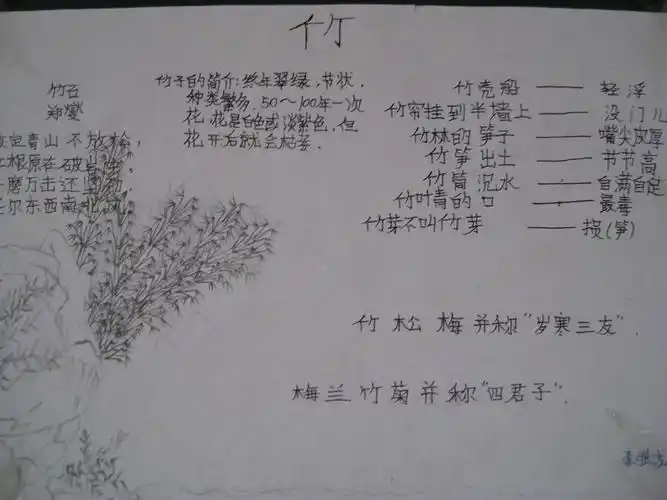 竹
竹石
郑燮
定青山不放松,
根原在破
磨万击还
尔东西南北风
竹子的简介:终年翠绿,节状,
种类繁多,50~100年一次
花,花是白色或淡紫色,但
花开后就会枯萎.
竹壳船——轻浮
竹帘挂到半墙上——没门儿
竹林的笋子——嘴尖皮厚
竹笋出土——节节高
竹筒沉水——自满自足
竹叶青的口——最毒
竹芽不叫竹芽——损(笋)
竹 松 梅并称"岁寒三友".
梅兰竹菊并称"四君子".